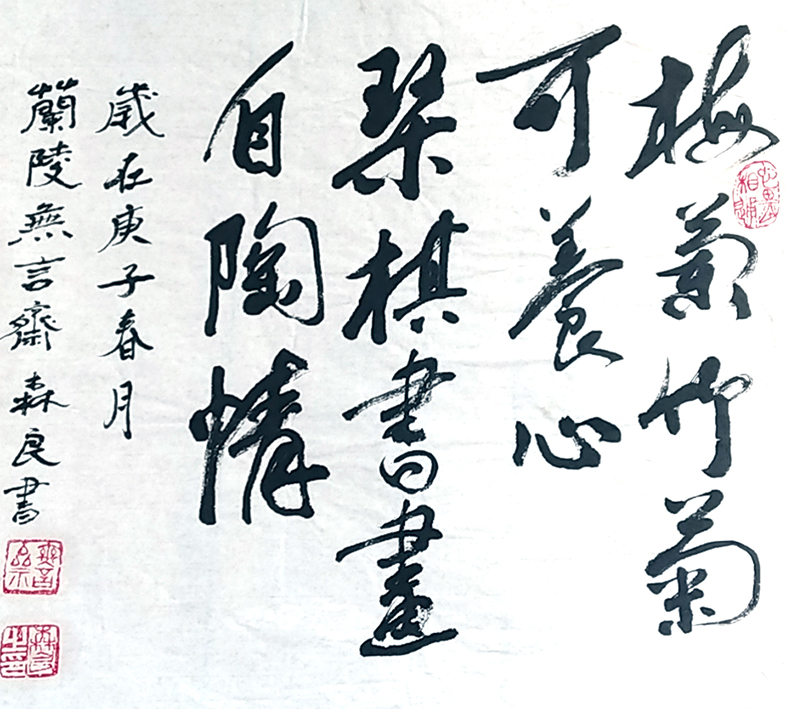 梅蘭竹菊
可養心
琴棋書畫
自陶情
歲在庚子春月
蘭陵無言齋森良書